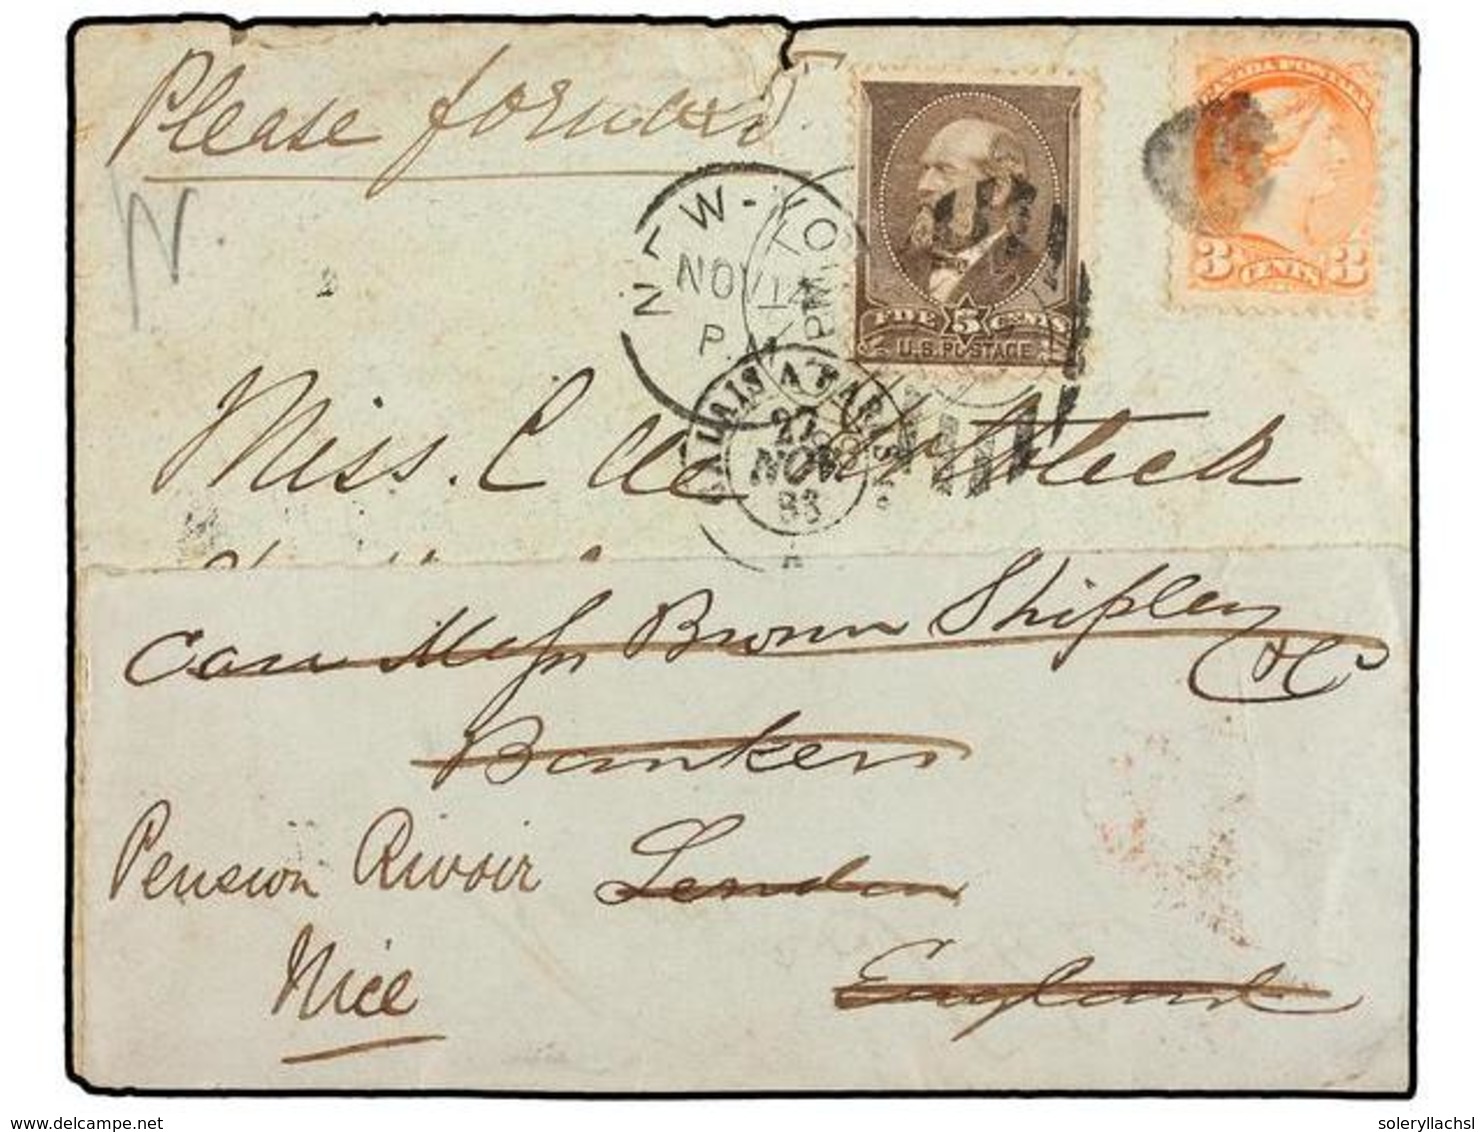 Please forward
N
CANADA POSTAGE
3 CENTS 3
NEW-YO
NOV 14
P.M
PM
FIVE 5 CENTS
U.S. POSTAGE
CALAIS A PARIS
22
NOV
83
Miss. C de
Care Messrs Brown Shipley
& Co
Bankers
Pension Rivoir London
Nice England
soleryllachsl